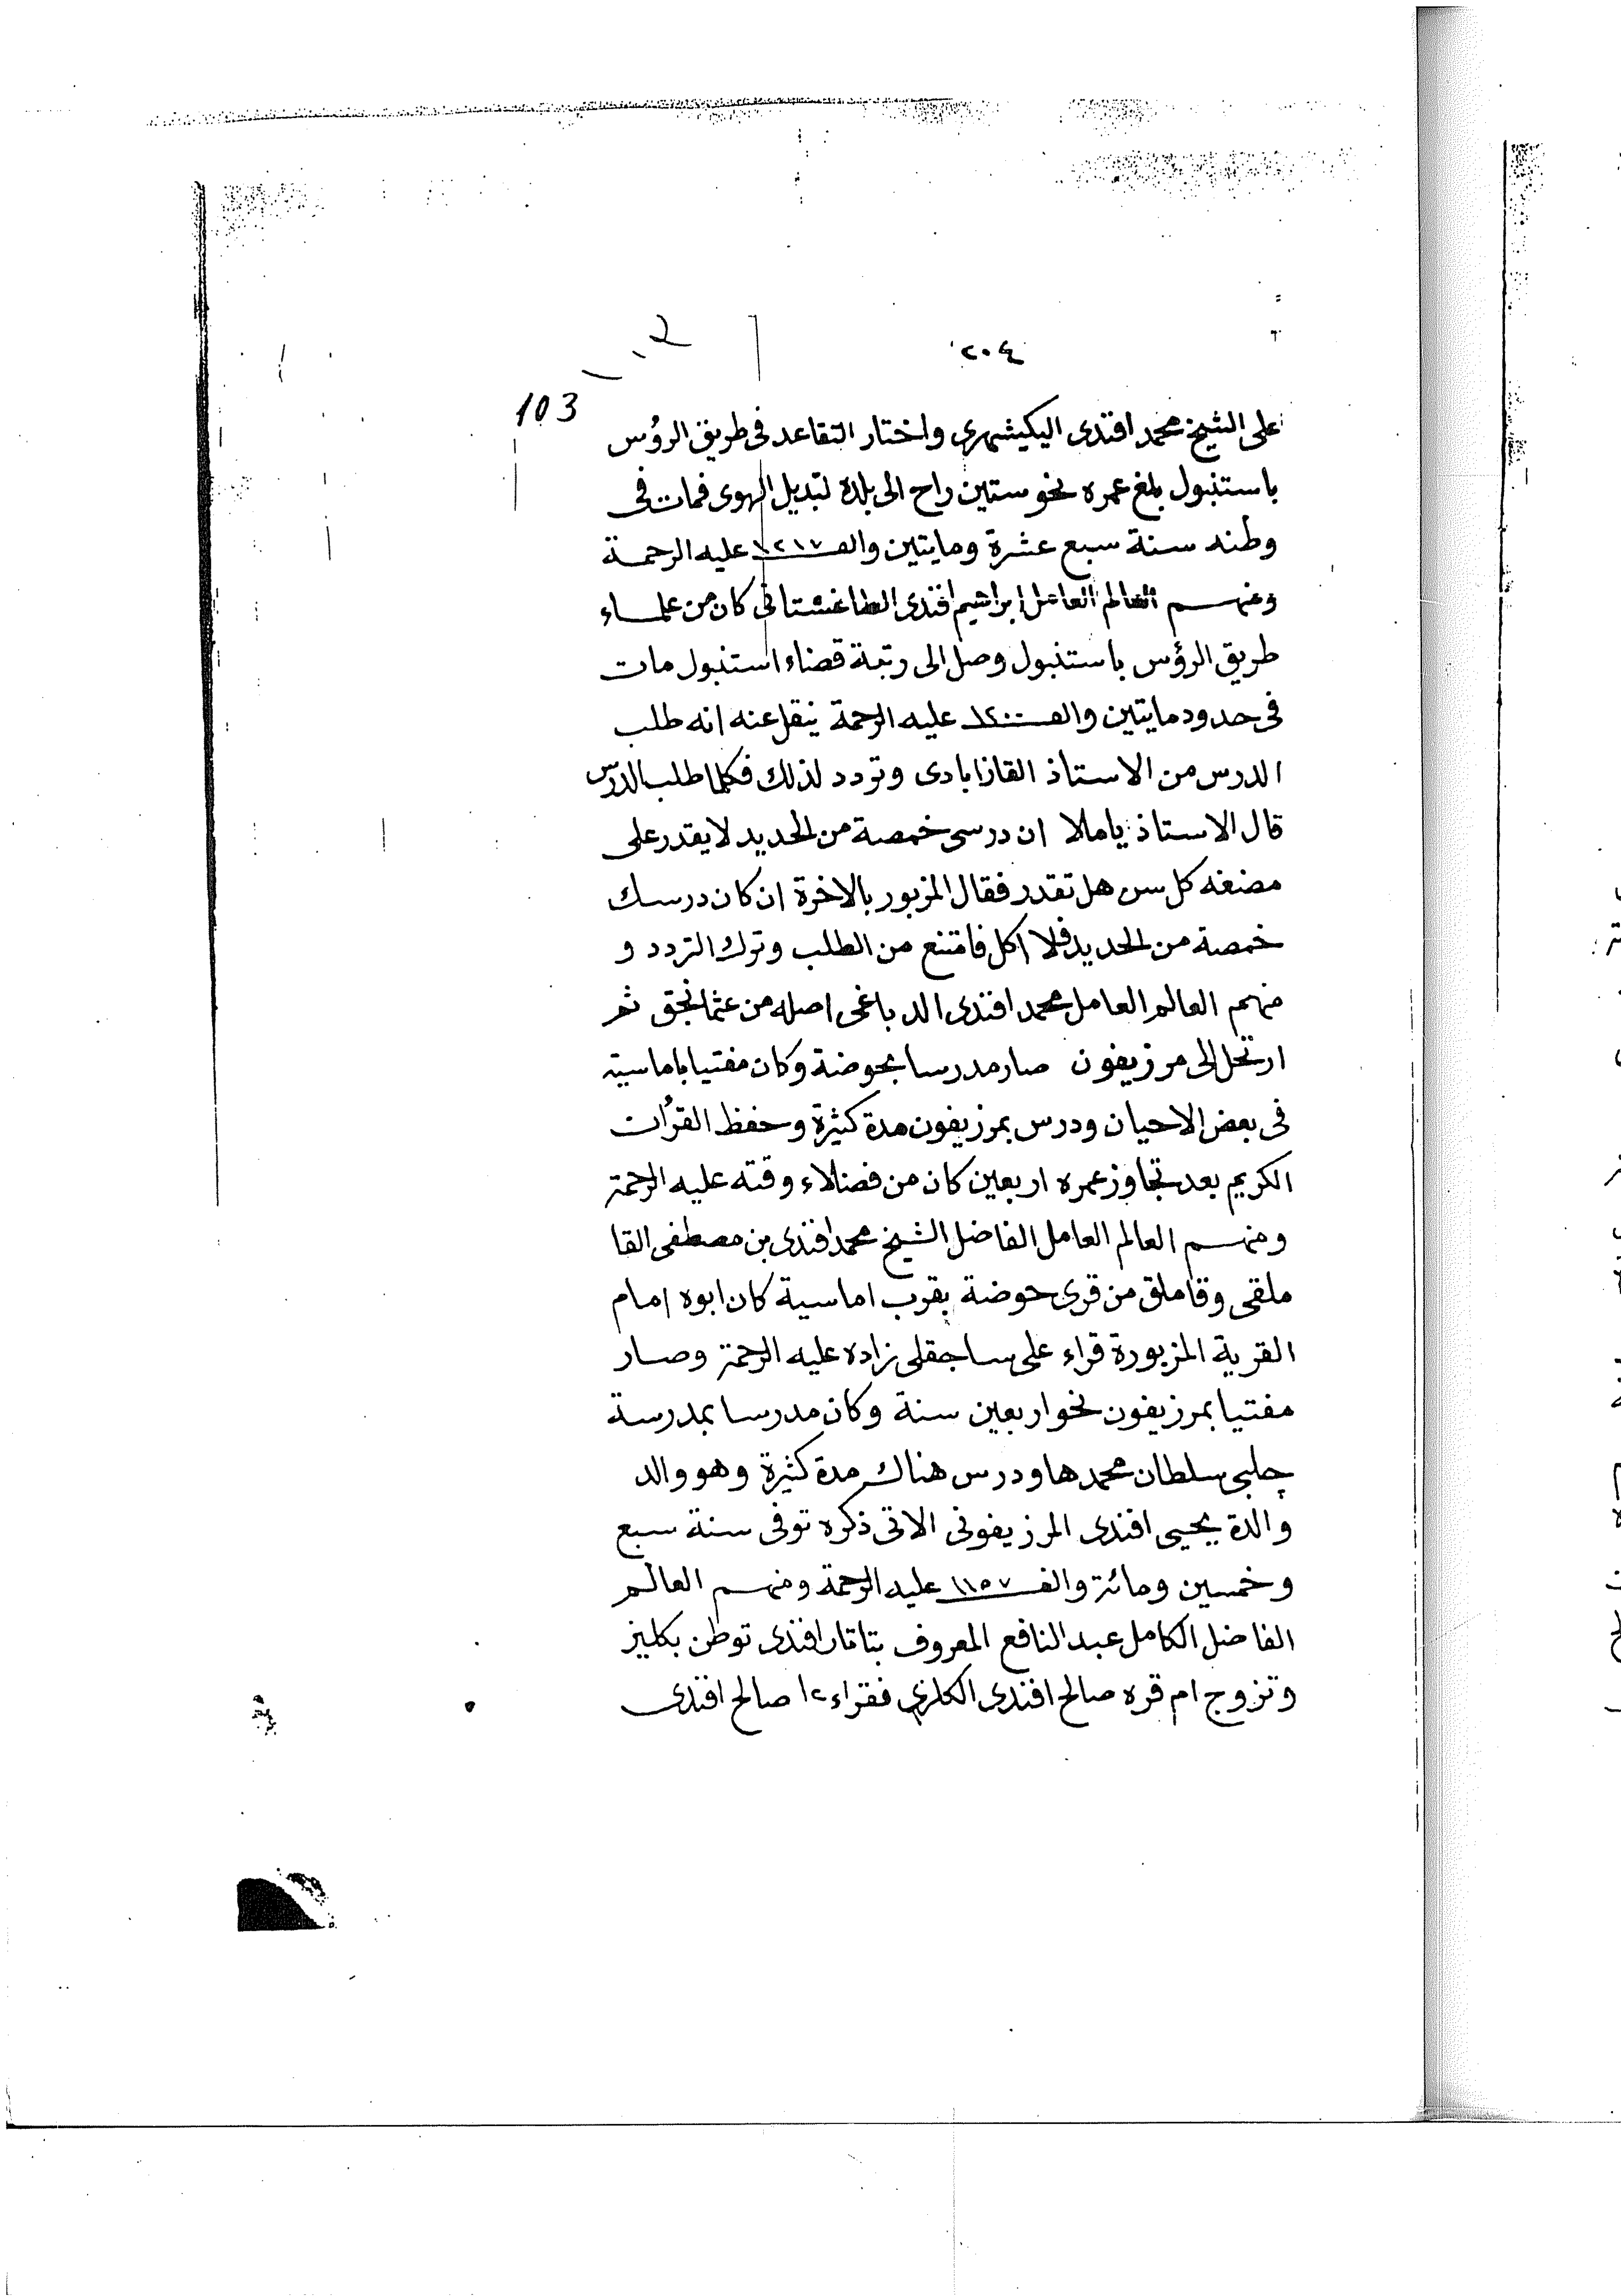 ٢٠٤
١٠٢
103
على الشيخ محمد افندى اليكيشهرى واختار التقاعد فى طريق الرؤس
باستنبول بلغ عمره نحو ستين راح الى بلده لتبديل الهوى فمات فى
وطنه سنة سبع عشرة ومايتين والف ١٢١٧ عليه الرحمة
ومنهم العالم العامل ابراهيم افندى الطاغستانى كان من علماء
طريق الرؤس باستنبول وصل الى رتبة قضاء استنبول مات
فى حدود مايتين والف ١٢٠٠ عليه الرحمة ينقل عنه انه طلب
الدرس من الاستاذ القازابادى وتردد لذلك فكلما طلب الدرس
قال الاستاذ ياملا ان درسى خمصة من الحديد لا يقدر على
مضغه كل سن هل تقدر فقال المزبور بالاخرة ان كان درسك
خمصة من الحديد فلا اكل فامتنع من الطلب وترك التردد و
منهم العالم العامل محمد افندى الدباغى اصله من عثمانجق ثم
ارتحل الى مرزيفون صار مدرسا بحوضة وكان مفتيا باماسية
فى بعض الاحيان ودرس بمرزيفون مدة كثيرة وحفظ القرأن
الكريم بعد تجاوز عمره اربعين كان من فضلاء وقته عليه الرحمة
ومنهم العالم العامل الفاضل الشيخ محمد افندى بن مصطفى القا
ملقى وقاملق من قرى حوضة بقرب اماسية كان ابوه امام
القرية المزبورة قراء على ساجقلى زاده عليه الرحمة وصار
مفتيا بمرزيفون نحو اربعين سنة وكان مدرسا بمدرسة
چلبى سلطان محمد ها ودرس هناك مدة كثيرة وهو والد
والدة يحيى افندى المرزيفونى الاتى ذكره توفى سنة سبع
وخمسين ومائة والف ١١٥٧ عليه الرحمة ومنهم العالم
الفاضل الكامل عبد النافع المعروف بتاتار افندى توطن بكليز
وتزوج ام قره صالح افندى الكلزى فقراء صالح افندى